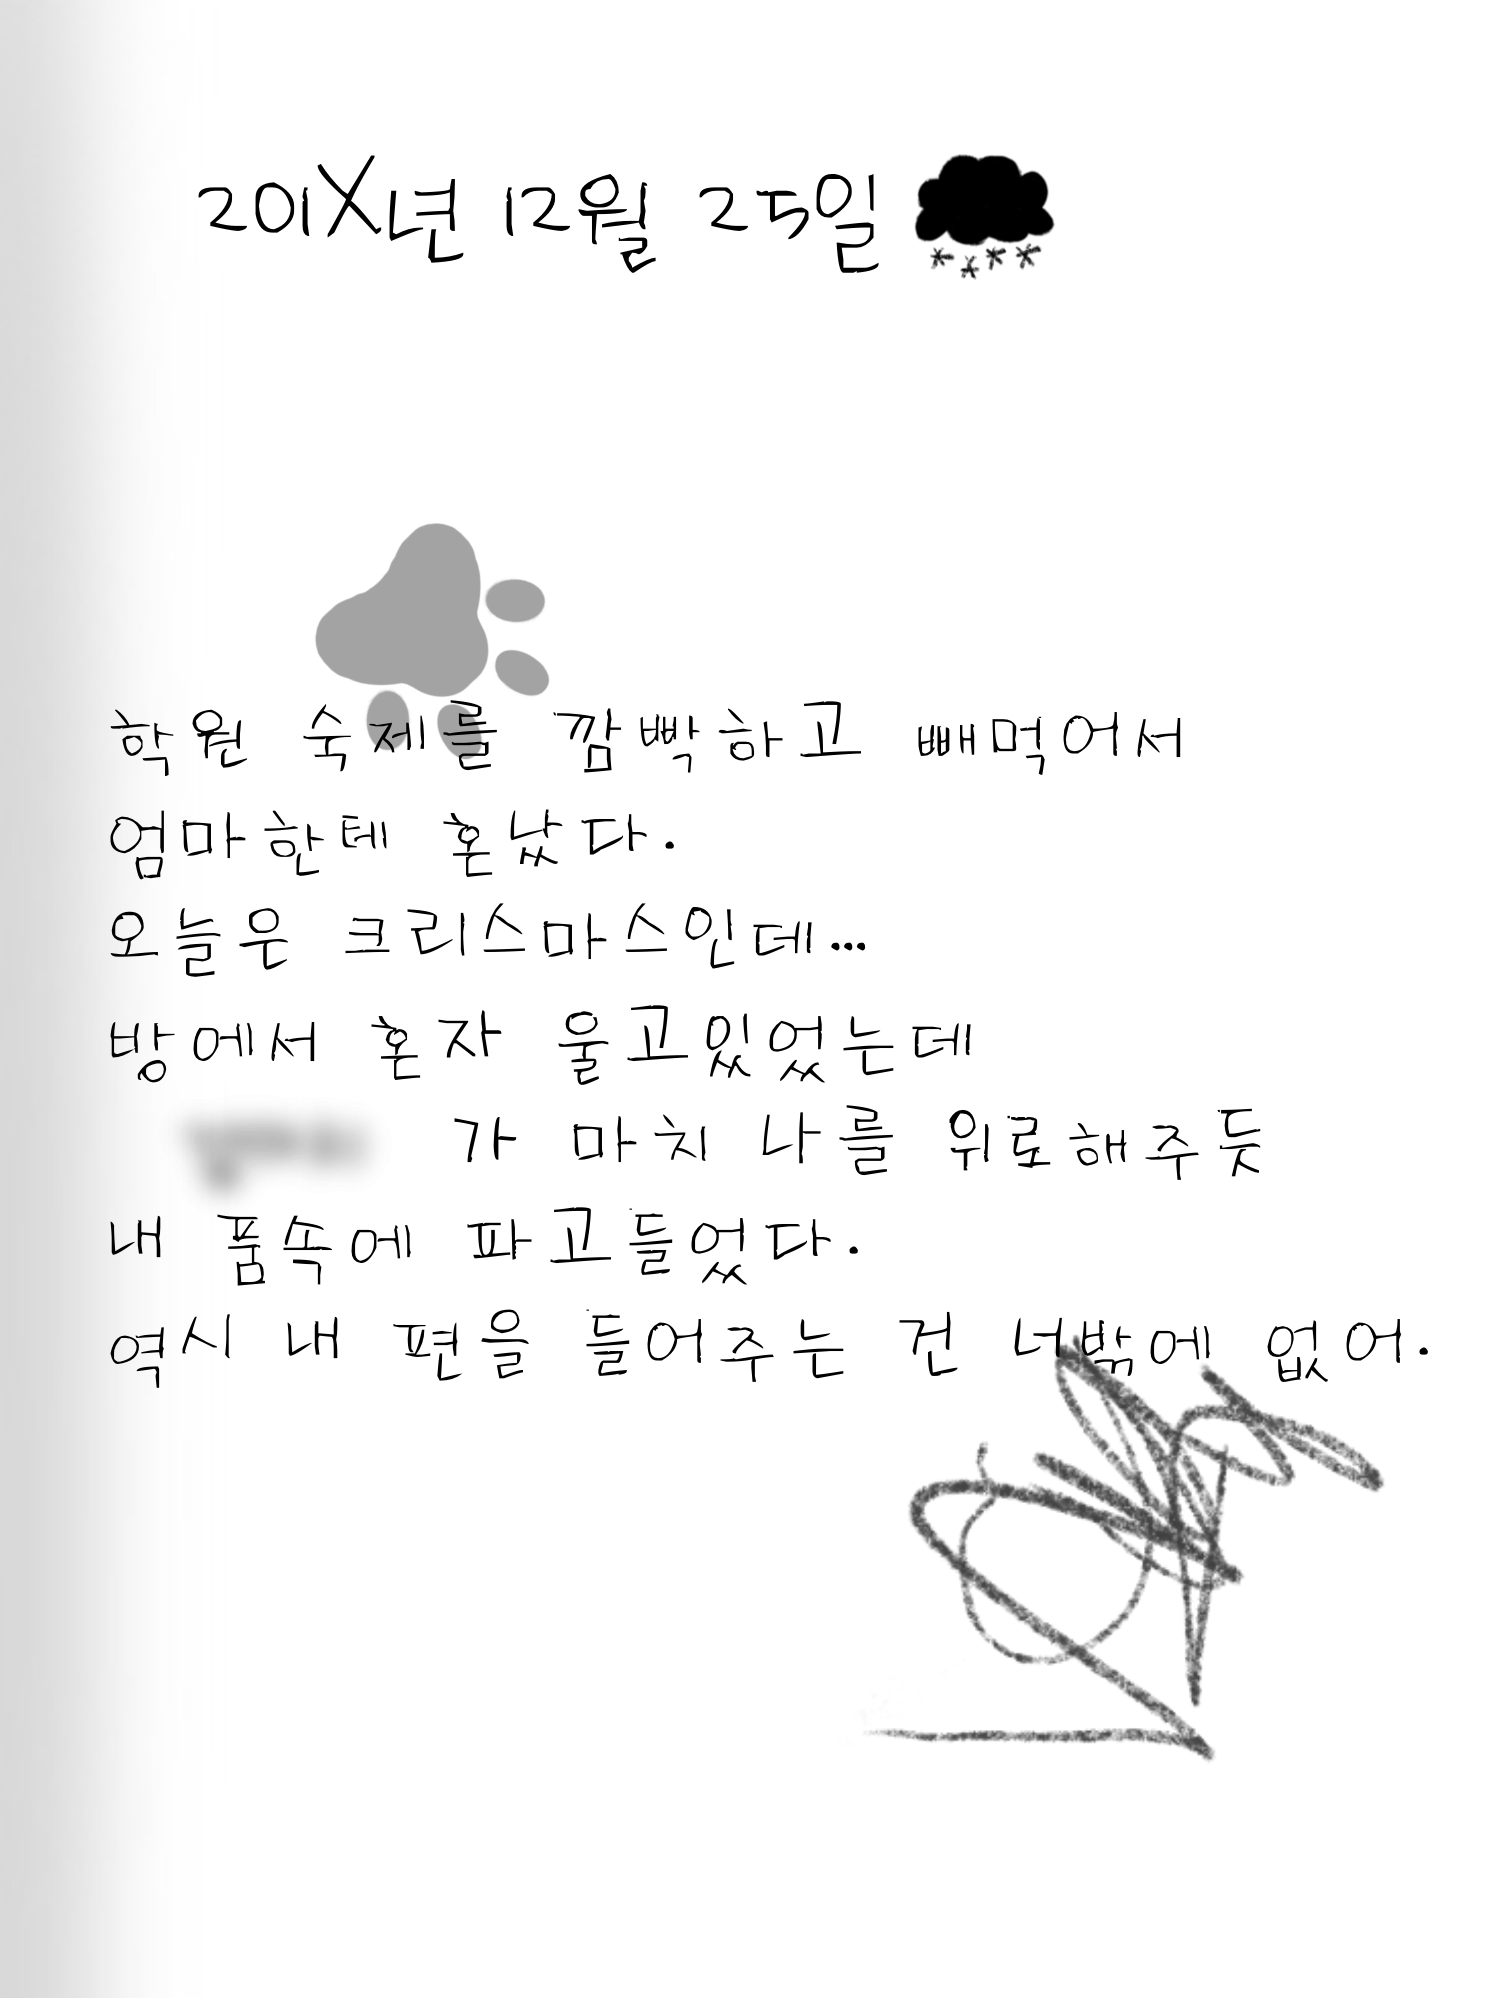 201X년 12월 25일
학원 숙제를 깜빡하고 빼먹어서
엄마한테 혼났다.
오늘은 크리스마스인데...
방에서 혼자 울고있었는데
가 마치 나를 위로해주듯
내 품속에 파고들었다.
역시 내 편을 들어주는 건 너밖에 없어.